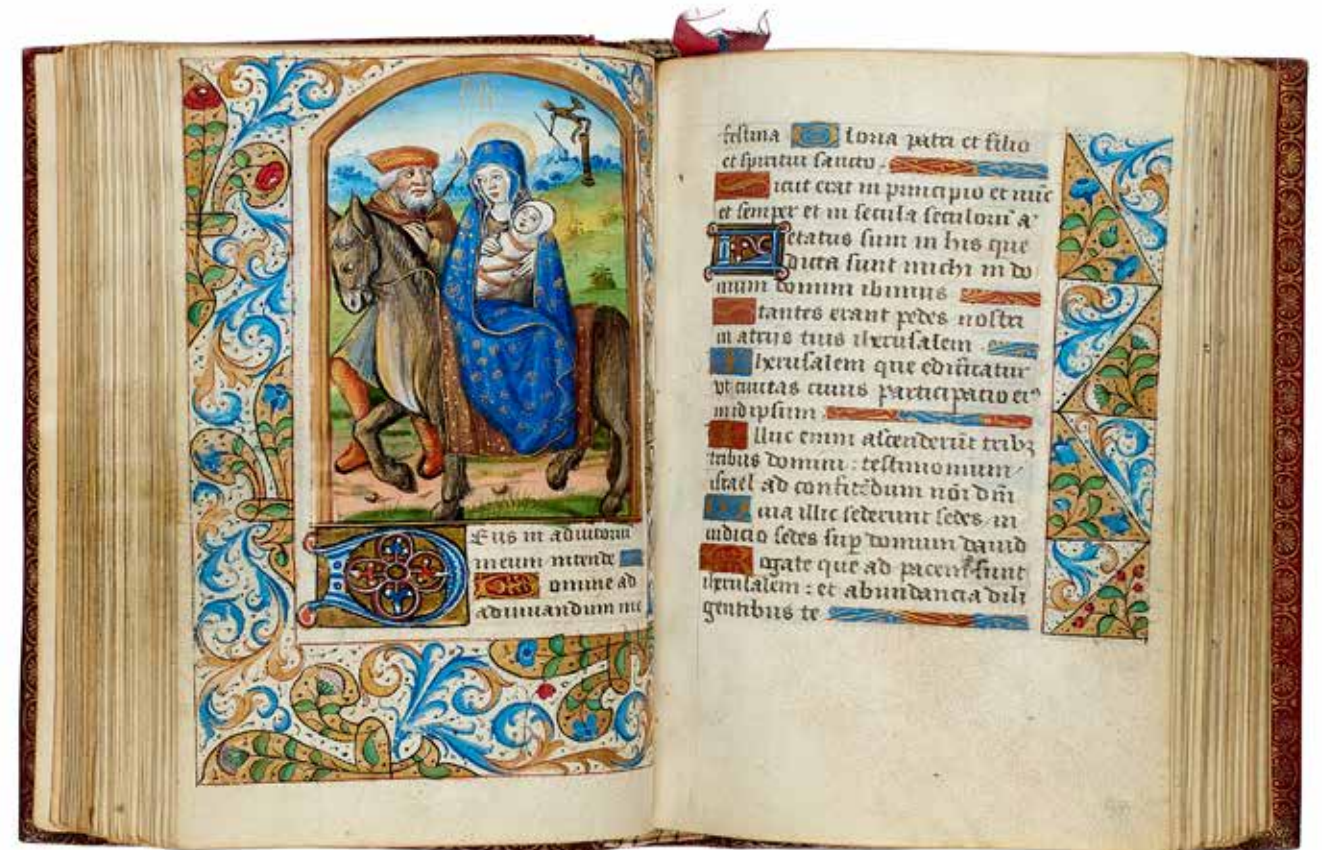 Eus in adiutoriu
meum intende
omine ad
adiuuandum me
festina Gloria patri et filio
et spiritui sancto.
Sicut erat in principio et nūc
et semper et in secula seculorū a
Letatus sum in his que
dicta sunt michi in do
mum domini ibimus
Stantes erant pedes nostri
in atriis tuis iherusalem
Iherusalem que edificatur
vt ciuitas cuius participacio eiꝰ
in idipsum
Illuc enim ascenderūt tribꝫ
tribus domini : testimonium
israel ad confitēdum nōi dn̄i
Quia illic sederunt sedes in
iudicio sedes sup domum dauid
Rogate que ad pacem sunt
iherusalem : et abundancia dili
gentibus te